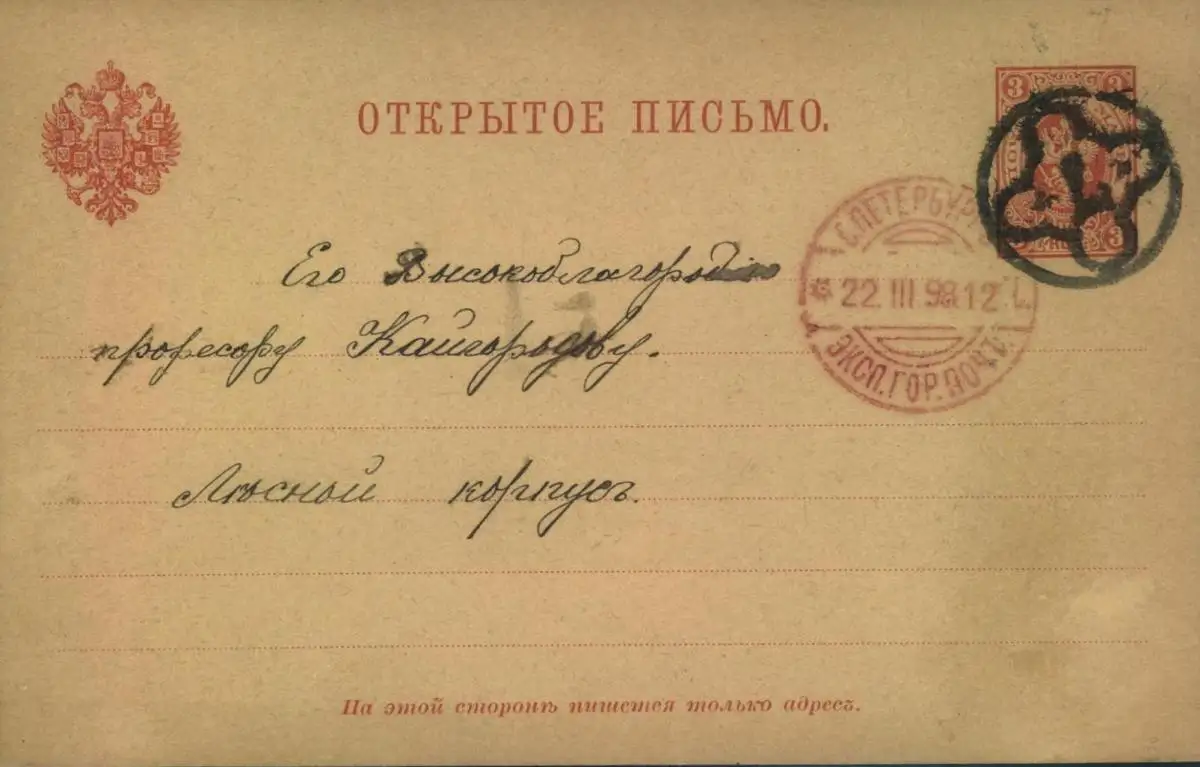 ОТКРЫТОЕ ПИСЬМО.
3 3
3
С.ПЕТЕРБУР
22 III 98 12
ЭКСП.ГОР.ПОЧТ.
Его
професору Кайгородову.
Лѣсной корпусъ.
На этой сторонѣ пишется только адресъ.